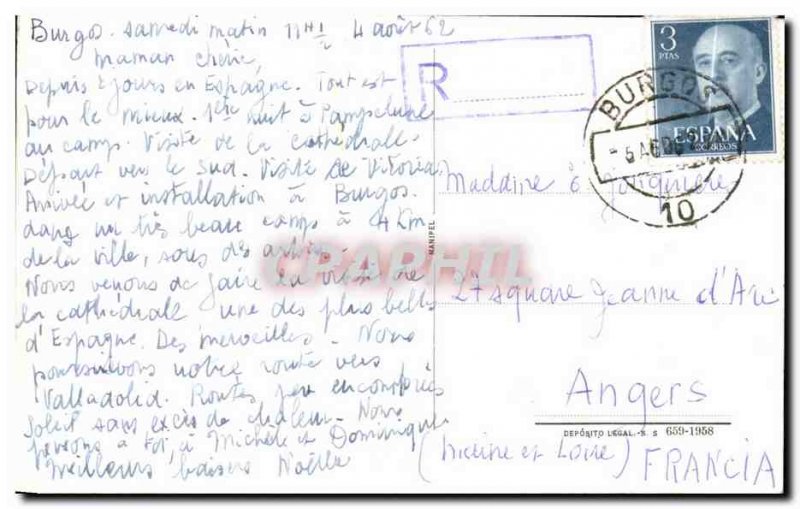 Burgos. samedi matin 11H 1/2 4 août 62
maman chérie,
Depuis 2 jours en Espagne. Tout est
pour le mieux. 1ère nuit à Pampelune
au camp. Visite de la cathédrale.
Départ vers le Sud. Visite de Vitoria.
Arrivée et installation à Burgos.
dans un très beau camp à 4 Km
de la ville, sous des arbres.
Nous venons de faire la visite de
la cathédrale une des plus belles
d'Espagne. Des merveilles. Nous
poursuivons notre route vers
Valladolid. Routes peu encombrées
Soleil sans excès de chaleur. Nous
pensons à toi, à Michèle et Dominique
Meilleurs baisers Noëlle
R
3
PTAS
ESPAÑA
CORREOS
BURGOS
10
MANIPEL
CPAPHIL
Madame
27 square Jeanne d'Arc
Angers
DEPÓSITO LEGAL.-S. S 659-1958
(Maine et Loire) FRANCIA